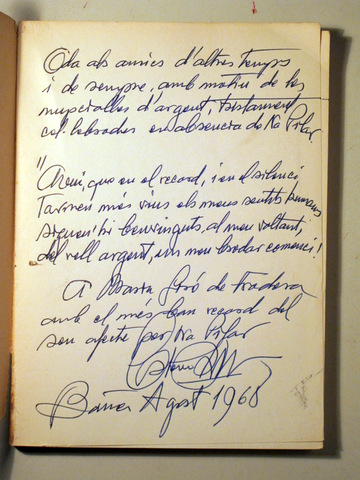 Oda als amics d'altres temps
i de sempre, amb motiu de les
nupcialles d'argent, tristament
col·lebrades en absencia de Na Pilar.
"
Avui, que en el record, i en el silenci
tornen més vius els meus sentits humans
sigueu-hi benvinguts, al meu voltant,
del vell argent, un nou brodar comenci!
A Maria Giró de Fradera
amb el més bon record del
seu afecte per Na Pilar
Baña Agost 1968